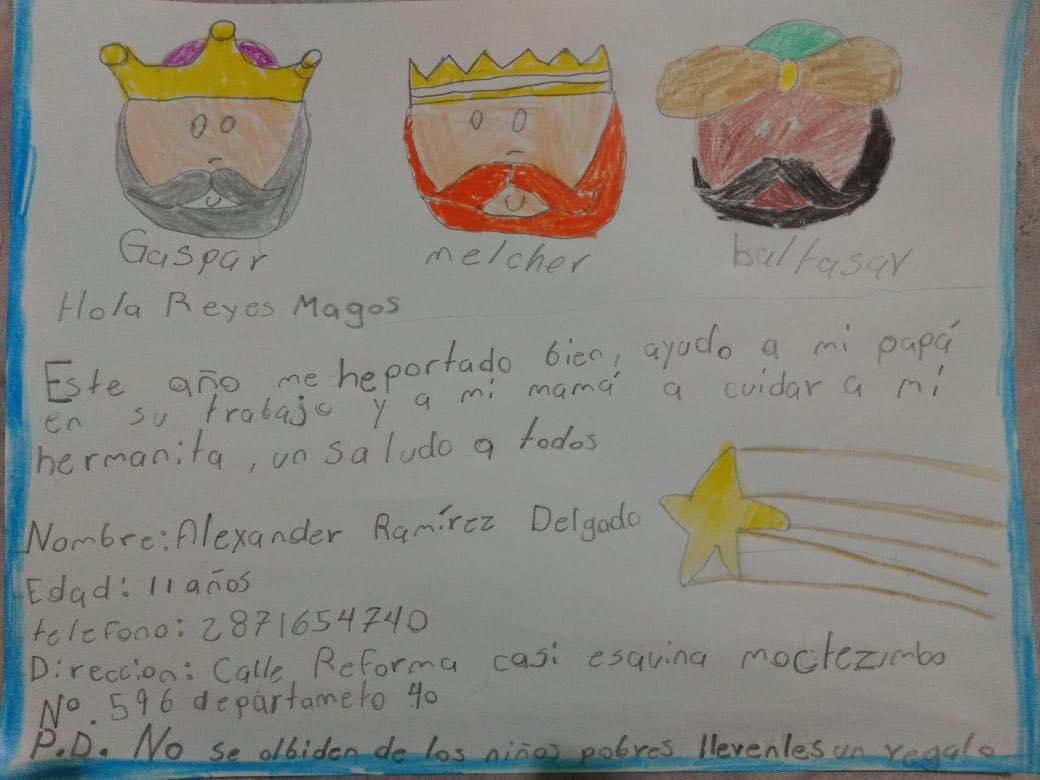 Gaspar melcher baltasar
Hola Reyes Magos
Este año me heportado bien, ayudo a mi papá
en su trabajo y a mi mamá a cuidar a mi
hermanita, un saludo a todos
Nombre: Alexander Ramírez Delgado
Edad: 11 años
telefono: 2871654740
Direccion: Calle Reforma casi esquina moctezumbo
Nº. 596 departameto 40
P.D. No se olbiden de los niños pobres llevenles un regalo